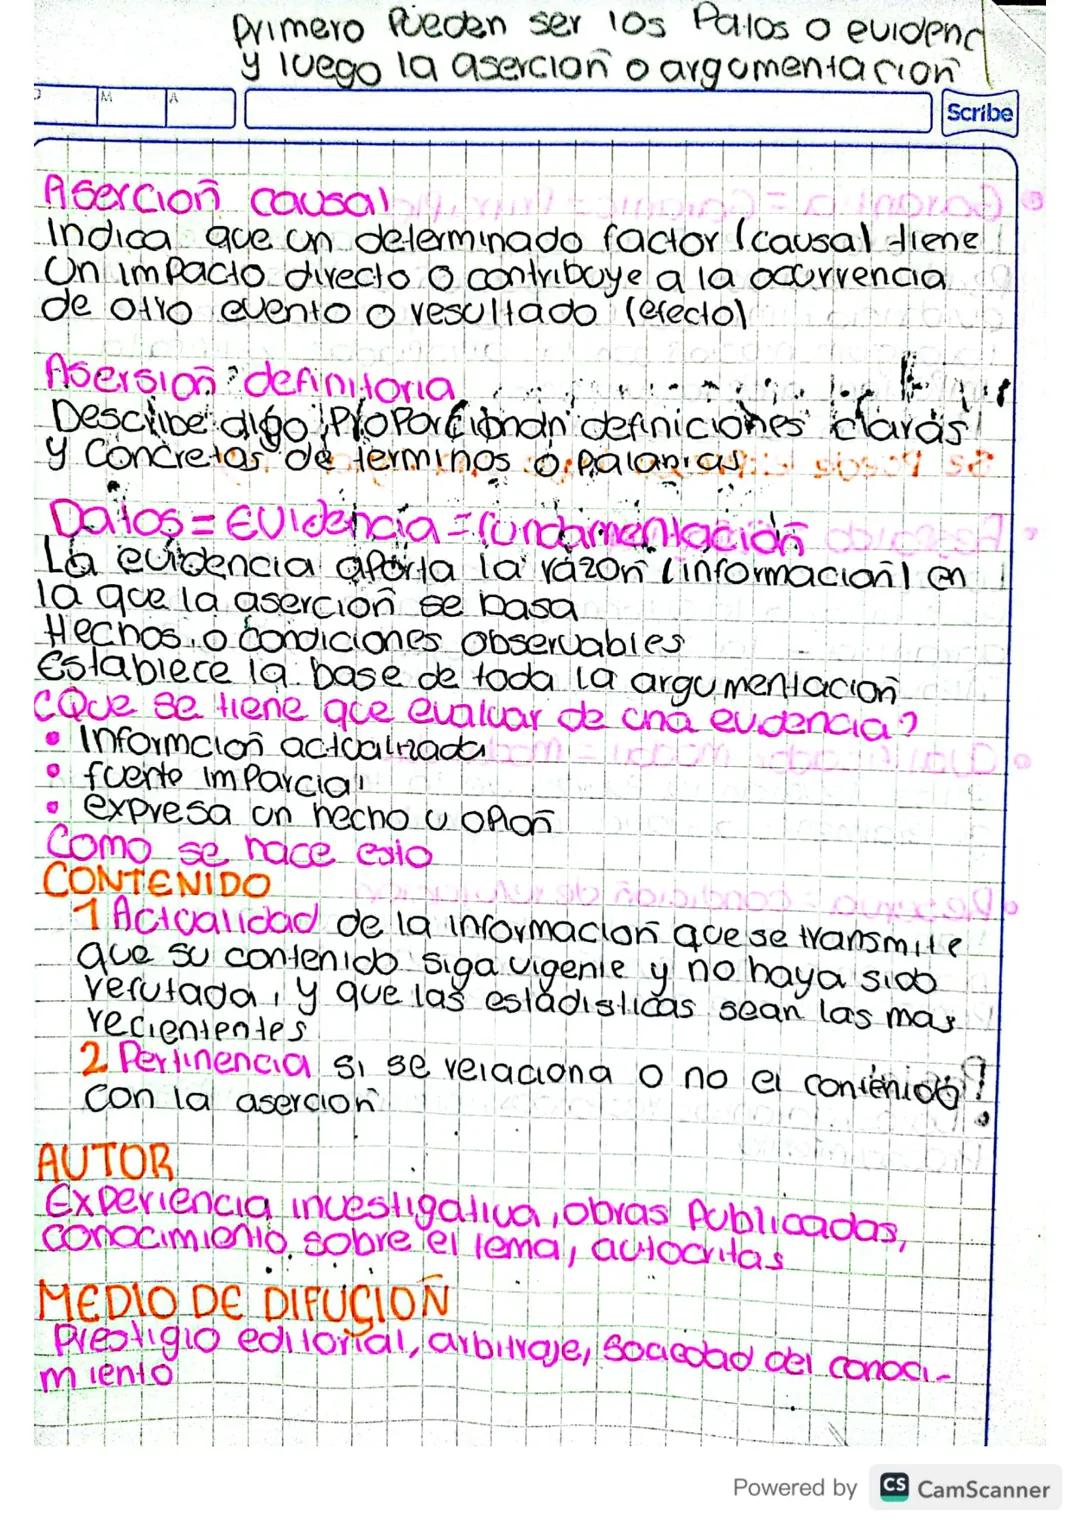 Primero Pueden ser los Datos o evidenc
y luego la aserción o argumentación
M A
Scribe
Aserción causal
Indica que un determinado factor (causa) tiene
Un impacto directo o contribuye a la ocurrencia
de otro evento o resultado (efecto)
Asersión definitoria
Describe algo, Proporcionan definiciones claras
y Concretas de terminos o palabras
Datos = Evidencia = fundamentación
La evidencia aporta la razón (información) en
la que la aserción se basa
Hechos o condiciones observables
Establece la base de toda la argumentación
¿Que se tiene que evaluar de una evidencia?
• Informción actualizada
• fuente imparcial
• expresa un hecho u opión
Como se hace esto
CONTENIDO
1 Actualidad de la información que se transmite
que su contenido siga vigente y no haya sido
refutada, y que las estadisticas sean las mas
recientes
2 Pertinencia si se relaciona o no el contenido
con la aserción
AUTOR
Experiencia investigativa, obras Publicadas,
conocimiento sobre el tema, autocritas
MEDIO DE DIFUCIÓN
Prestigio editorial, arbitraje, Sociedad del conoci-
miento
Powered by CS CamScanner